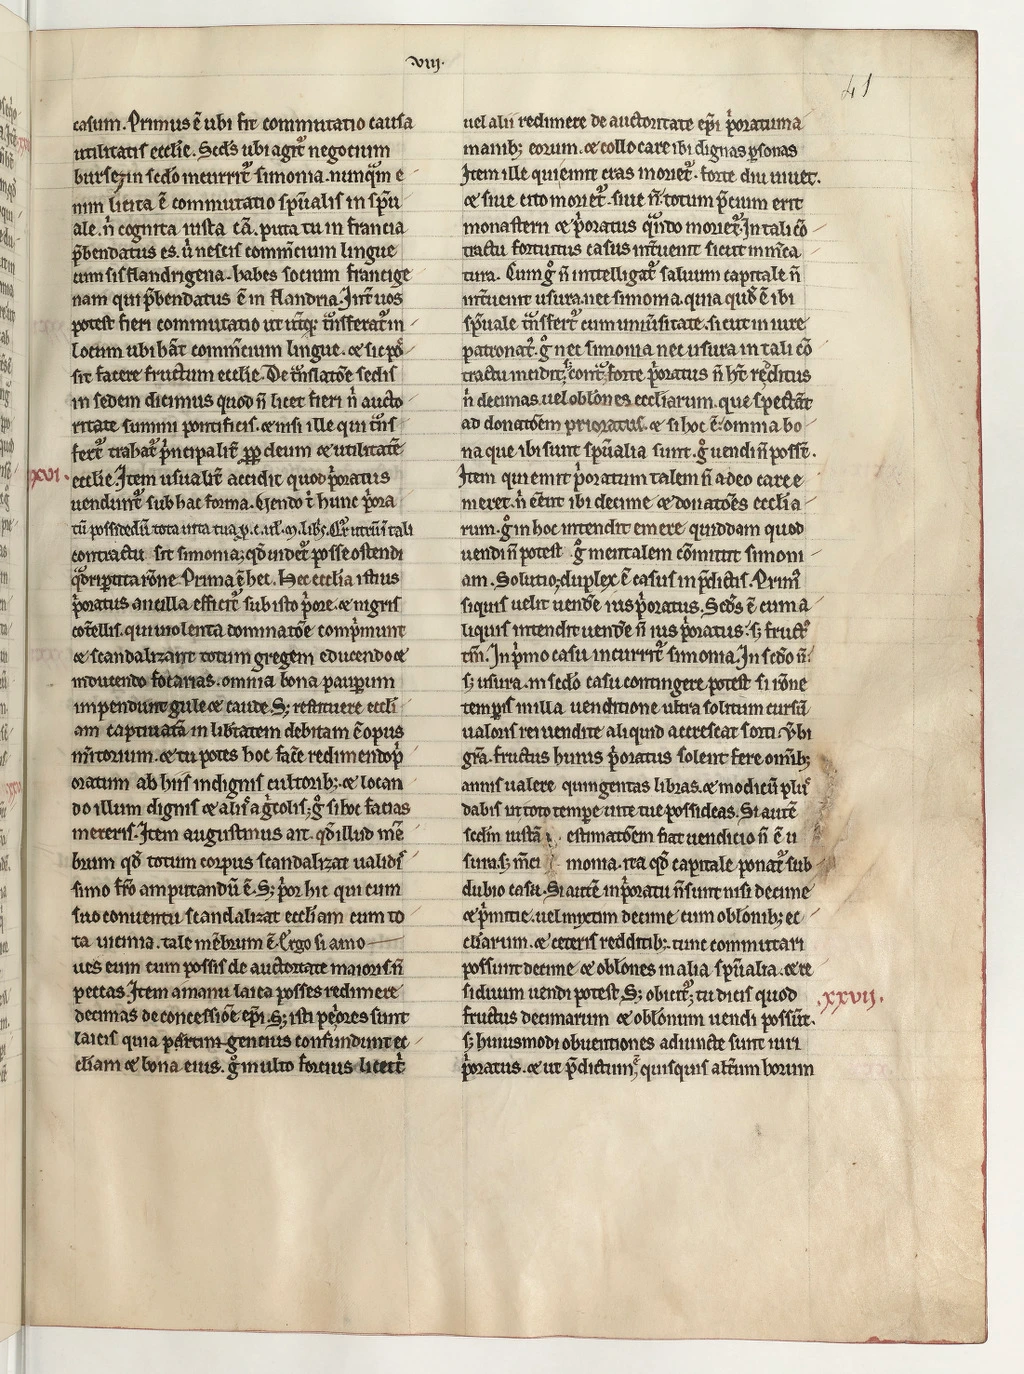 .viij.
41
casum. Primus ē ubi fit commutatio causa
utilitatis ecclīe. Scd's ubi agit̄ negotium
in scd̄o incurrit̄ simonia. nunq̄m e
nim licita ē commutatio sp̄ualis in sp̄u
ale. n̄ cognita iusta cā. puta tu in francia
p̄bendatus es. ⁊ nescis comm̄cium lingue
cum sis flandrigena. habes socium francige
nam qui p̄bendatus ē in flandria. Int̄ uos
potest fieri commutatio ut ut̄q; t̄nsferat̄ in
locum ubi hāt comm̄cium lingue. ⁊ sic pō
sit facere fructum ecclīe. De t̄nslatōe sedis
in sedem dicimus quod n̄ licet fieri n̄ aucto
ritate summi pontificis. ⁊ nisi ille qui t̄ns
fert̄ trahat̄ p̄ncipalit̄ ꝓpt̄ deum ⁊ utilitatē
xxvi.
ecclīe. Item usualit̄ accidit quod p̄oratus
uendunt̄ sub hac forma. Uendo t̄ hunc p̄ora
tū possidēdū tota uita tua
contractu sit simonia; qd̄ uidet̄ posse ostendi
q̄dripertita rōne. Prima ē hec. Hec ecclīa istius
p̄oratus ancilla efficit̄ sub isto p̄ore ⁊ nigris
cot̄ellis. qui uiolenta dominatōe comp̄munt
⁊ scandalizant totum gregem educendo ⁊
inducendo focarias. omnia bona pauꝑum
impendunt gule ⁊ caude. S; restituere eccli
am captiuatā in lib̄tatem debitam ē opus
m̄itorium. ⁊ tu potes hoc fac̄e redimendo p̄
oratum ab hiis indignis cultorib; ⁊ locan
do illum dignis ⁊ aliis ag̊colis; g̊ si hoc facias
mereris. Item augustinus ait. qd̄ illud mē
brum qd̄ totum corpus scandalizat ualidis
simo f̄ro amputandū ē. S; p̄or hic qui cum
suo conuentu scandalizat eccl̄iam cum to
ta uicinia. tale mēbrum ē. Ergo si amo
ues eum cum possis de auctoritate maioris n̄
peccas. Item a manu laica posses redimere
decimas de concessiōe ep̄i. S; isti peiores sunt
laicis quia confundunt ec
cliam ⁊ bona eius. g̊ multo forcius licet t̄
uel alii redimere de auctoritate ep̄i p̄oratum a
manib; eorum. ⁊ collocare ibi dignas ꝑsonas
Item ille qui emit cras moriet̄. forte diu uiuet.
⁊ siue cito moriet̄. siue n̄. totum p̄cium erit
monasterii ⁊ p̄oratus q̄ndo moriet̄. In tali cō
tractu fortuitus casus int̄uenit sicut in m̄ca
tura. Cum g̊ n̄ intelligat̄ saluum capitale n̄
int̄uenit usura. nec simonia. quia qd̄ ē ibi
sp̄uale t̄nsfert̄ cum uniu̅sitate. sicut in iure
patronat̄. g̊ nec simonia nec usura in tali cō
tractu incidit. s; cont̄. forte p̄oratus n̄ h̄t reditus
n̄ decimas. uel oblōnes ecclīarum. que spectāt
ad donatōem prioratus. ⁊ si hoc ē. omnia bo
na que ibi sunt sp̄ualia sunt. g̊ uendi n̄ possn̄t.
Item qui emit p̄oratum talem n̄ adeo care e
meret. n̄ eēnt ibi decime ⁊ donatōes ecclīa
rum. g̊ in hoc intendit emere quiddam quod
uendi n̄ potest g̊ mentalem cōmittit simoni
am. Solutio; duplex ē casus in p̄dictis. Prim'
si quis uelit uend̄e ius p̄oratus. Scd's ē cum a
liquis intendit uend̄e n̄ ius p̄oratus. s; fruct'
tm̄. In p̄mo casu incurrit̄ simonia. In scd̄o n̄.
s; usura. in scd̄o casu contingere potest si rōne
temꝑis in illa uenditione ultra solitum cursū
ualoris rei uendite aliquid accrescat sorti. U̅bi
gr̄a. fructus huius p̄oratus solent fere omib;
annis ualere quingentas libras. ⁊ modicū plus
dabis ut toto tempore uite tue possideas. Si autē
scdm iustā estimatōem fiat uendicio n̄ ē u
sura. s; monia. ita qd̄ capitale ponat̄ sub
dubio casu. Si autē in p̄oratu n̄ sunt nisi decime
⁊ p̄mitie. uel mixtim decime cum oblōnib; ec
cl̄iarum. ⁊ ceteris redditib; tunc commutari
possunt decime ⁊ oblōnes in alia sp̄ualia. ⁊ re
xxvij.
siduum uendi potest. S; obicit̄; tu dicis quod
fructus decimarum ⁊ oblōnum uendi possūt.
s; huiusmodi obuentiones adiuncte sunt iuri
p̄oratus. ⁊ ut p̄dictum ē, quisquis alt̄um horum